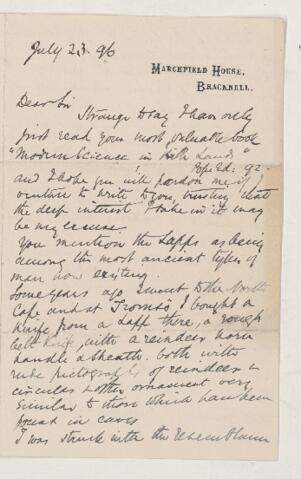 July 23. 96
MARCHFIELD HOUSE,
BRACKNELL.
Dear Sir
Strange to say I have only
just read your most valuable book
"Modern Science in Bible Lands"
Pop. Ed: 92-
and I hope you will pardon me if I
venture to write to you, trusting that
the deep interest I take in it may
be my excuse.
You mention the Lapps as being
among the most ancient types of
man now existing.
Some years ago I went to the North
Cape and at Tromsö I bought a
knife from a Lapp there, a rough
belt knife with a reindeer horn
handle & sheath. both with
rude pictographs of reindeer &
circular & other ornament very
similar to those which have been
found in caves
I was struck with the resemblance